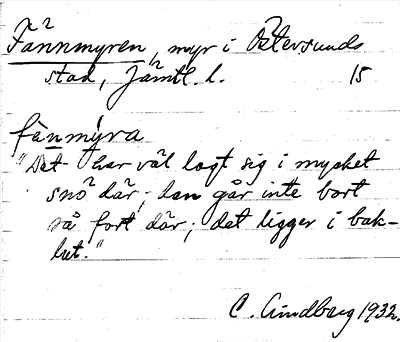 Fännmyren, myr i Östersunds
stad, Jämtl. l. 15
fänmýra
"Det har väl lagt sig i mycket
snö där; den går inte bort
så fort där; det ligger i bak-
lut."
C. Lindberg 1932.